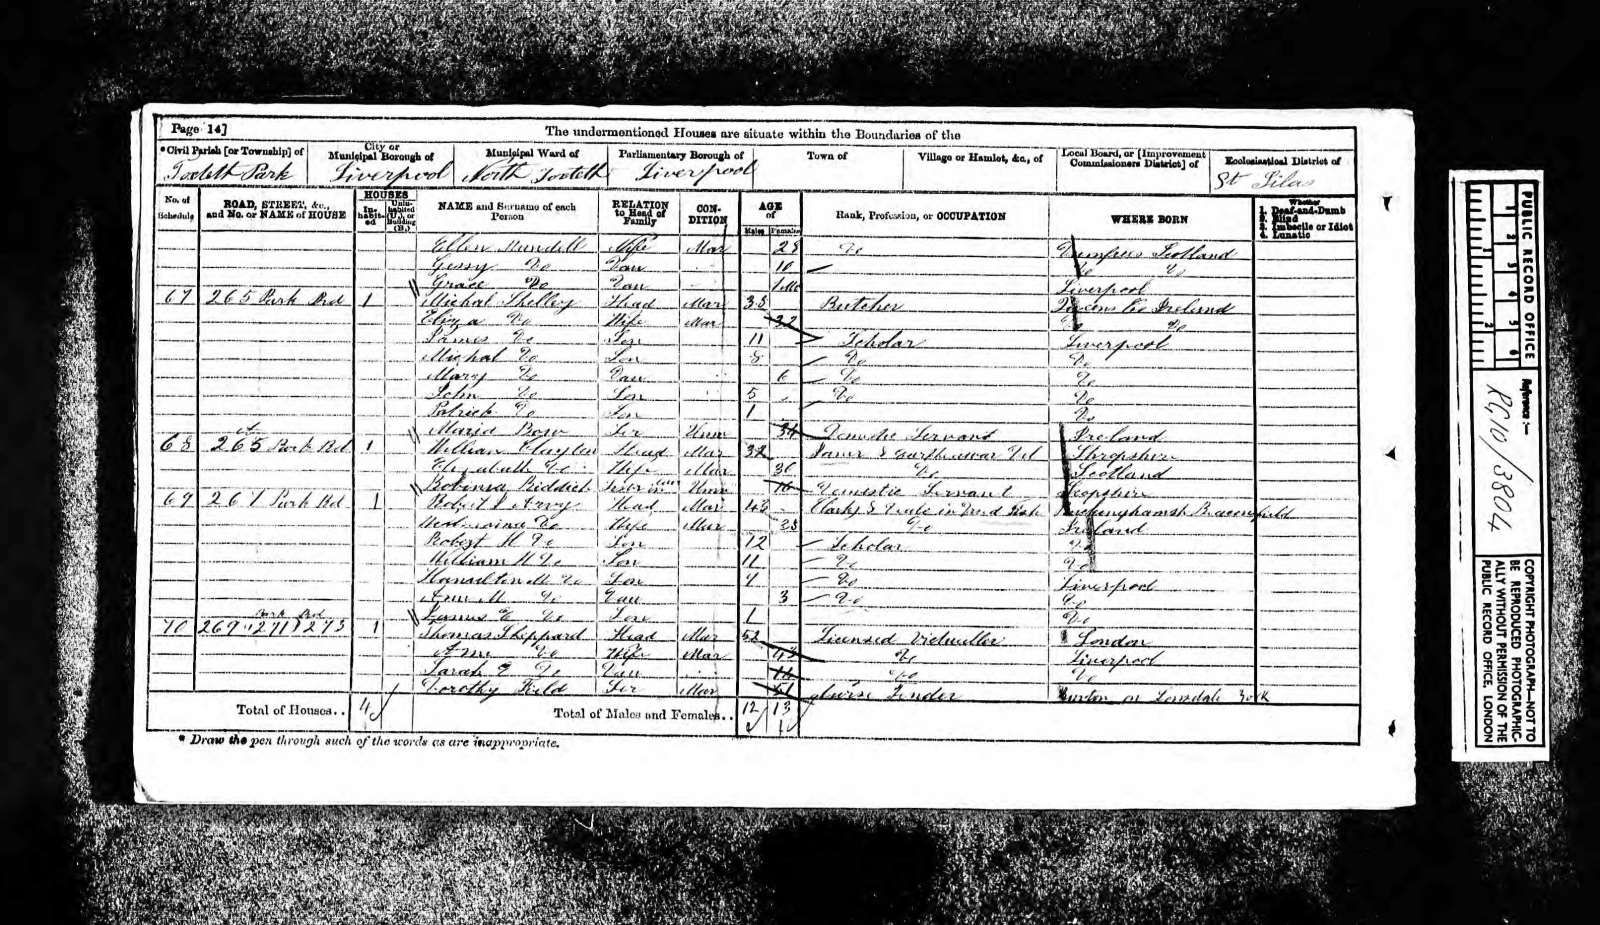 Page 14]
The undermentioned Houses are situate within the Boundaries of the
*Civil Parish [or Township] of
City or Municipal Borough of
Municipal Ward of
Parliamentary Borough of
Town of
Village or Hamlet, &c., of
Local Board, or [Improvement Commissioners District] of
Ecclesiastical District of
Toxteth Park Liverpool North Toxteth Liverpool St Silas
No. of Schedule
ROAD, STREET, &c., and No. or NAME of HOUSE
HOUSES
Inhabited
Uninhabited (U.), or Building (B.)
NAME and Surname of each Person
RELATION to Head of Family
CONDITION
AGE of
Males Females
Rank, Profession, or OCCUPATION
WHERE BORN
Whether
1. Deaf-and-Dumb
2. Blind
3. Imbecile or Idiot
4. Lunatic
Ellen Wife Mar 28 Do Dumfries Scotland
Do Dau 10 Do Do
Grace Do Dau 1 Mo Liverpool
67 265 Park Rd 1 Michal Shelley Head Mar 38 Butcher Queens Co Ireland
Eliza Do Wife Mar 32 Do
James Do Son 11 Scholar Liverpool
Michal Do Son 8 Do Do
Mary Do Dau 6 Do Do
John Do Son 5 Do Do
Patrick Do Son 1 Do
Maria Ser Unm Servant Ireland
68 265 Park Rd 1 William Clayton Head Mar 32 & Shropshire
Elizabeth Do Wife Mar 30 Do Scotland
Riddick Unm 16 Domestic Servant
69 267 Park Rd 1 Robert Head Mar 43 Beaconsfield
Do Wife Mar Do Ireland
Robert H Do Son 12 Scholar Do
William H Do Son 11 Do Do
Hamilton Do Son 7 Do Liverpool
Ann M Do Dau 3 Do Do
James Do Son 1 Do
Park Rd
70 269 271 273 1 Thomas Sheppard Head Mar 52 Licensed Victualler London
Do Wife Mar 43 Do Liverpool
Sarah E Do Dau 14 Do Do
Dorothy Field Ser Mar 51 on Lonsdale York
Total of Houses.. 4
Total of Males and Females.. 12 13
* Draw the pen through such of the words as are inappropriate.
PUBLIC RECORD OFFICE
1 2 3 4 5 6
1 2
Reference:-
RG10/3804
COPYRIGHT PHOTOGRAPH—NOT TO BE REPRODUCED PHOTOGRAPHICALLY WITHOUT PERMISSION OF THE PUBLIC RECORD OFFICE, LONDON